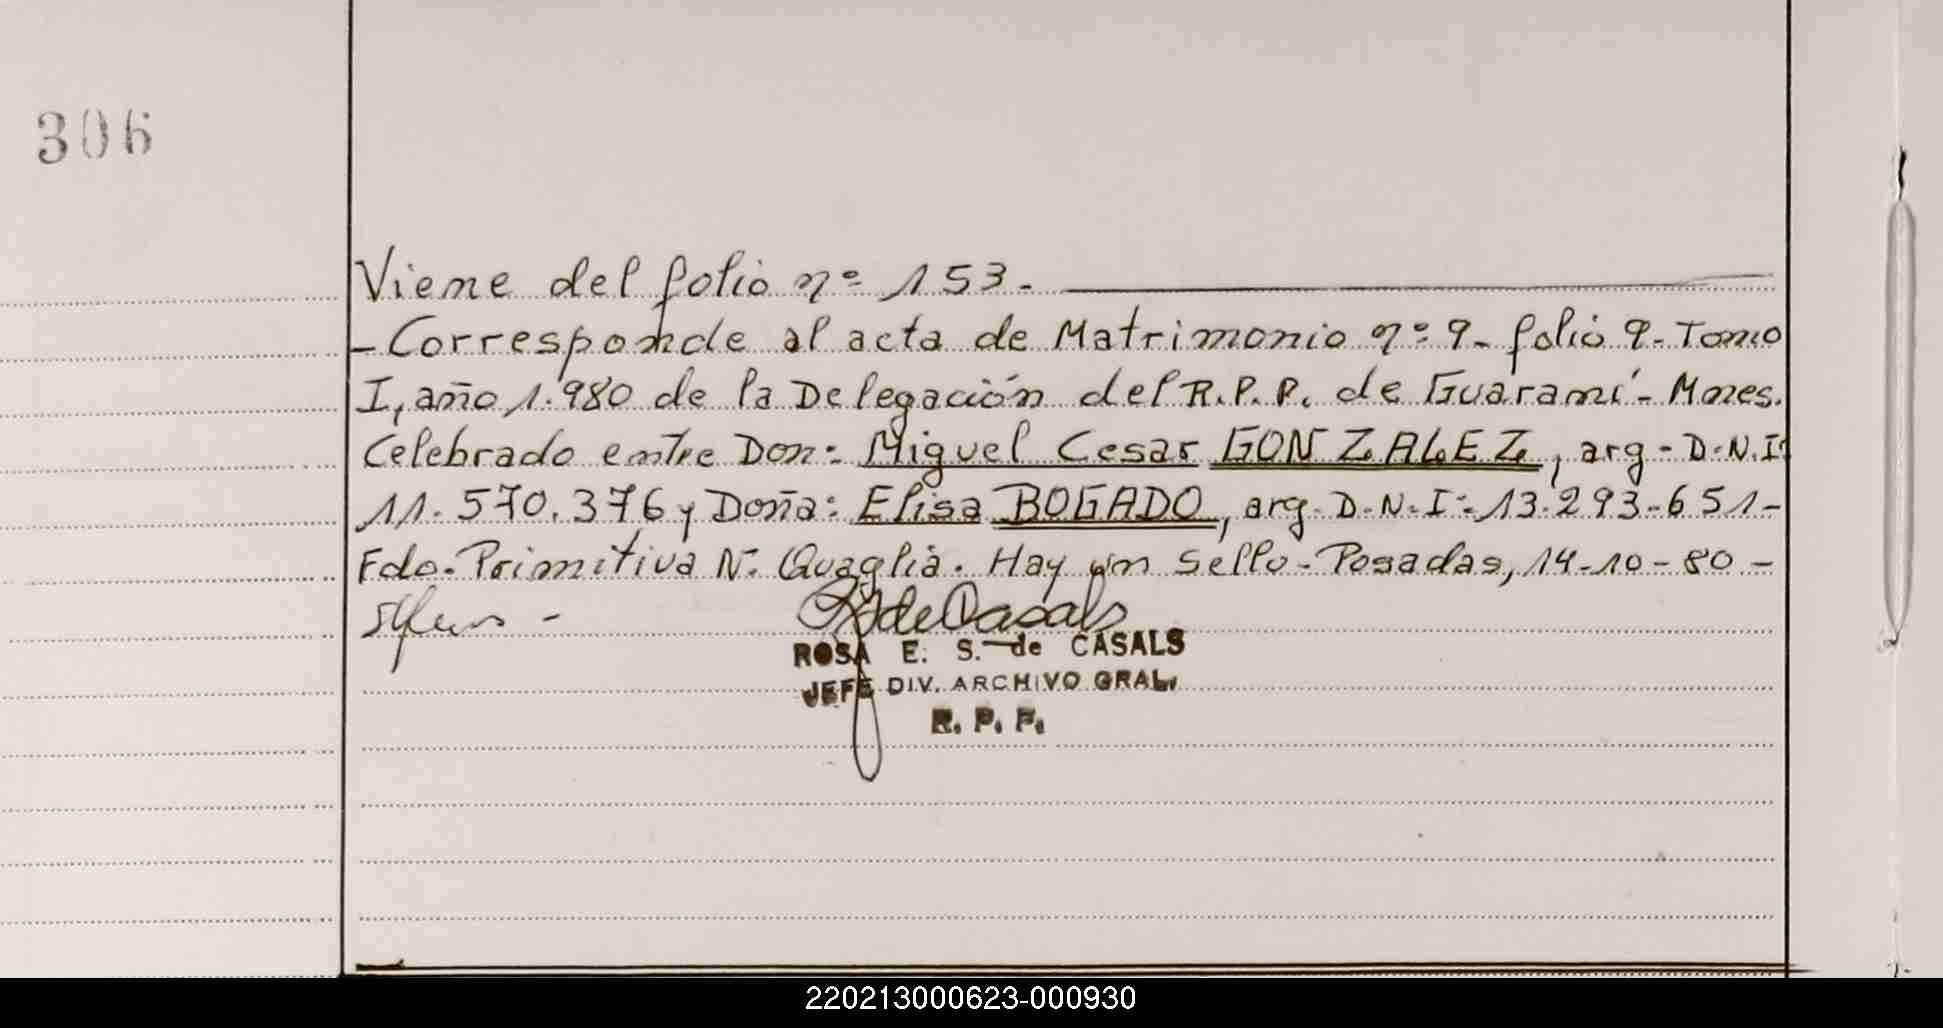 306
Viene del folio nº 153.-
- Corresponde al acta de Matrimonio nº 9- folio 9- Tomo
I, año 1.980 de la Delegación del R.P.P. de Guaraní- Mnes.
Celebrado entre Don: Miguel Cesar GONZALEZ, arg- D.N.I:
11.570.376 y Doña: Elisa BOGADO, arg. D.N.I: 13.293-651-
Fdo. Primitiva N. Quaglia. Hay un Sello- Posadas, 14-10-80-
de Casals
ROSA E. S. de CASALS
JEFE DIV. ARCHIVO GRAL.
R. P. P.
220213000623-000930